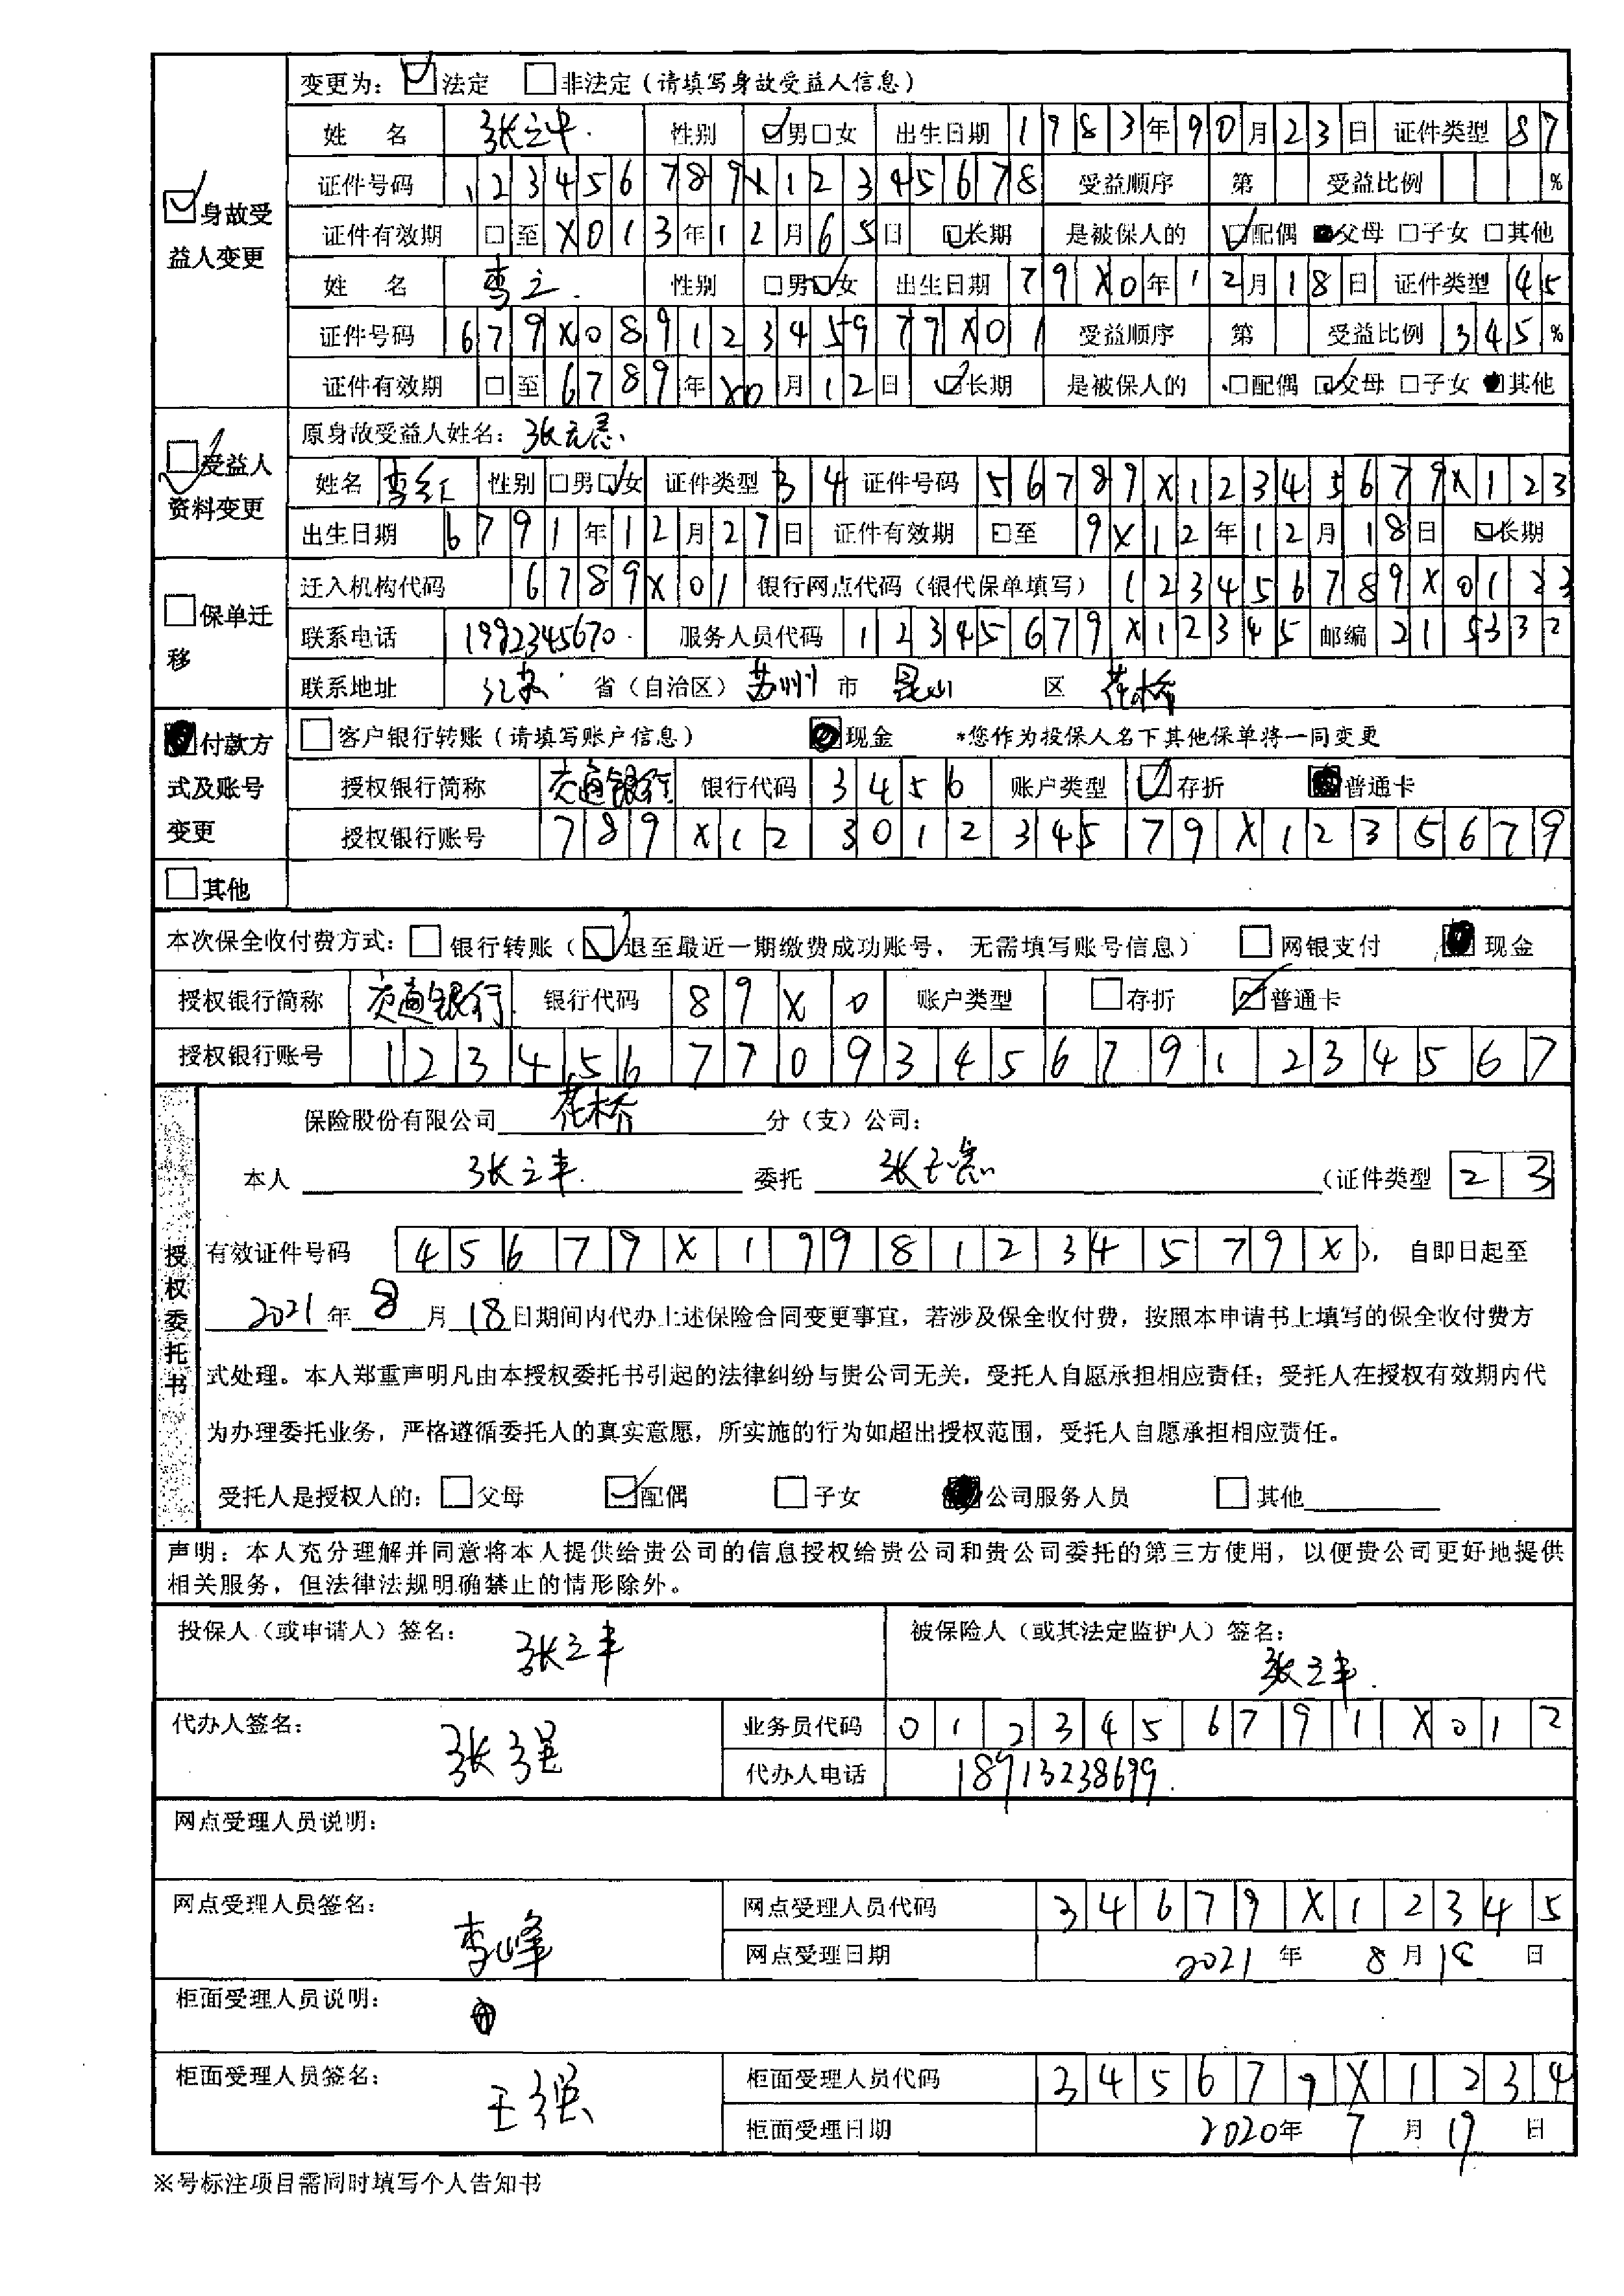 变更为： ☑法定 □非法定（请填写身故受益人信息）
姓 名 张立丰 性别 ☑男□女 出生日期 1983年90月23日 证件类型 87
证件号码 123456789X12345678 受益顺序 第 受益比例 %
☑身故受益人变更
证件有效期 □至 X013年12月65日 ☑长期 是被保人的 ☑配偶 ■父母 □子女 □其他
姓 名 李立 性别 □男☑女 出生日期 79X0年12月18日 证件类型 45
证件号码 679X0891234597 9X01 受益顺序 第 受益比例 345%
证件有效期 □至 6789年X0月12日 ☑长期 是被保人的 □配偶 ☑父母 □子女 ■其他
原身故受益人姓名：
☑受益人资料变更
姓名 李红 性别 □男☑女 证件类型 34 证件号码 56789X12345679X123
出生日期 6791年12月27日 证件有效期 □至 9X12年12月18日 ☑长期
迁入机构代码 6789X01 银行网点代码（银代保单填写） 123456789X0123
□保单迁移
联系电话 1992345670 服务人员代码 12345679X12345 邮编 215332
联系地址 江苏 省（自治区） 苏州 市 昆山 区 花桥
■付款方式及账号变更
□客户银行转账（请填写账户信息） ■现金 *您作为投保人名下其他保单将一同变更
授权银行简称 交通银行 银行代码 3456 账户类型 ☑存折 ■普通卡
授权银行账号 789X12301234579X1235679
□其他
本次保全收付费方式： □ 银行转账（☑退至最近一期缴费成功账号， 无需填写账号信息） □ 网银支付 ■ 现金
授权银行简称 交通银行 银行代码 89X0 账户类型 □存折 ☑普通卡
授权银行账号 12345677093456791234567
授权委托书
保险股份有限公司 花桥 分（支）公司：
本人 张立丰 委托 （证件类型 23
有效证件号码 45679X19981234579X ）， 自即日起至
2021 年 8 月 18 日期间内代办上述保险合同变更事宜，若涉及保全收付费，按照本申请书上填写的保全收付费方
式处理。本人郑重声明凡由本授权委托书引起的法律纠纷与贵公司无关，受托人自愿承担相应责任；受托人在授权有效期内代
为办理委托业务，严格遵循委托人的真实意愿，所实施的行为如超出授权范围，受托人自愿承担相应责任。
受托人是授权人的： □父母 ☑配偶 □子女 ■公司服务人员 □ 其他
声明：本人充分理解并同意将本人提供给贵公司的信息授权给贵公司和贵公司委托的第三方使用，以便贵公司更好地提供
相关服务，但法律法规明确禁止的情形除外。
投保人（或申请人）签名： 张立丰 被保险人（或其法定监护人）签名： 张立丰
代办人签名： 张强 业务员代码 0123456791X012
代办人电话 18913238699
网点受理人员说明：
网点受理人员签名： 李峰 网点受理人员代码 34679X12345
网点受理日期 2021 年 8 月 18 日
柜面受理人员说明：
柜面受理人员签名： 王强 柜面受理人员代码 345679X1234
柜面受理日期 2020年 7 月 19 日
※号标注项目需同时填写个人告知书